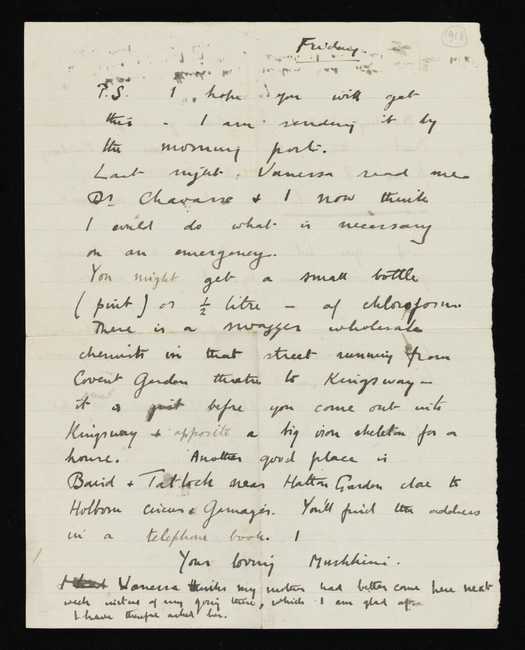 Friday.
1918
P.S. I hope you will get
this - I am sending it by
the morning post.
Last night Vanessa read me
Dr Chavasse & I now think
I could do what is necessary
on an emergency.
You might get a small bottle
(pint) or ½ litre - of chloroform
There is a swagger wholesale
chemists in that street running from
Covent Garden theatre to Kingsway -
it is just before you come out into
Kingsway & opposite a big iron skeleton for a
house. Another good place is
Baird & Tatlock near Hatton Garden close to
Holborn Circus & Gamages. You'll find the address
in a telephone book.
Your loving Mushkini.
Vanessa thinks my mother had better come here next
week instead of my going there, which I am glad of
I have therefore asked her.